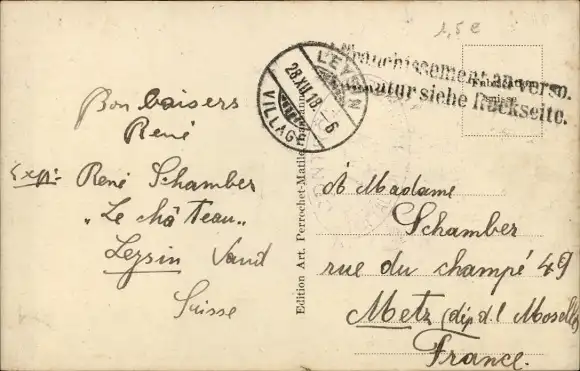 1,5 €
Bon baisers
René
Exp: René Schamber
"Le château"
Leysin Vaud
Suisse
LEYSIN
28.XII.18.-6
VILLAGE
Affranchissement au verso.
Frankatur siehe Rückseite.
Edition Art. Perrochet-Matile, Lausanne
A Madame
Schamber
rue du champé 49
Metz (dép. d. l. Moselle)
France.